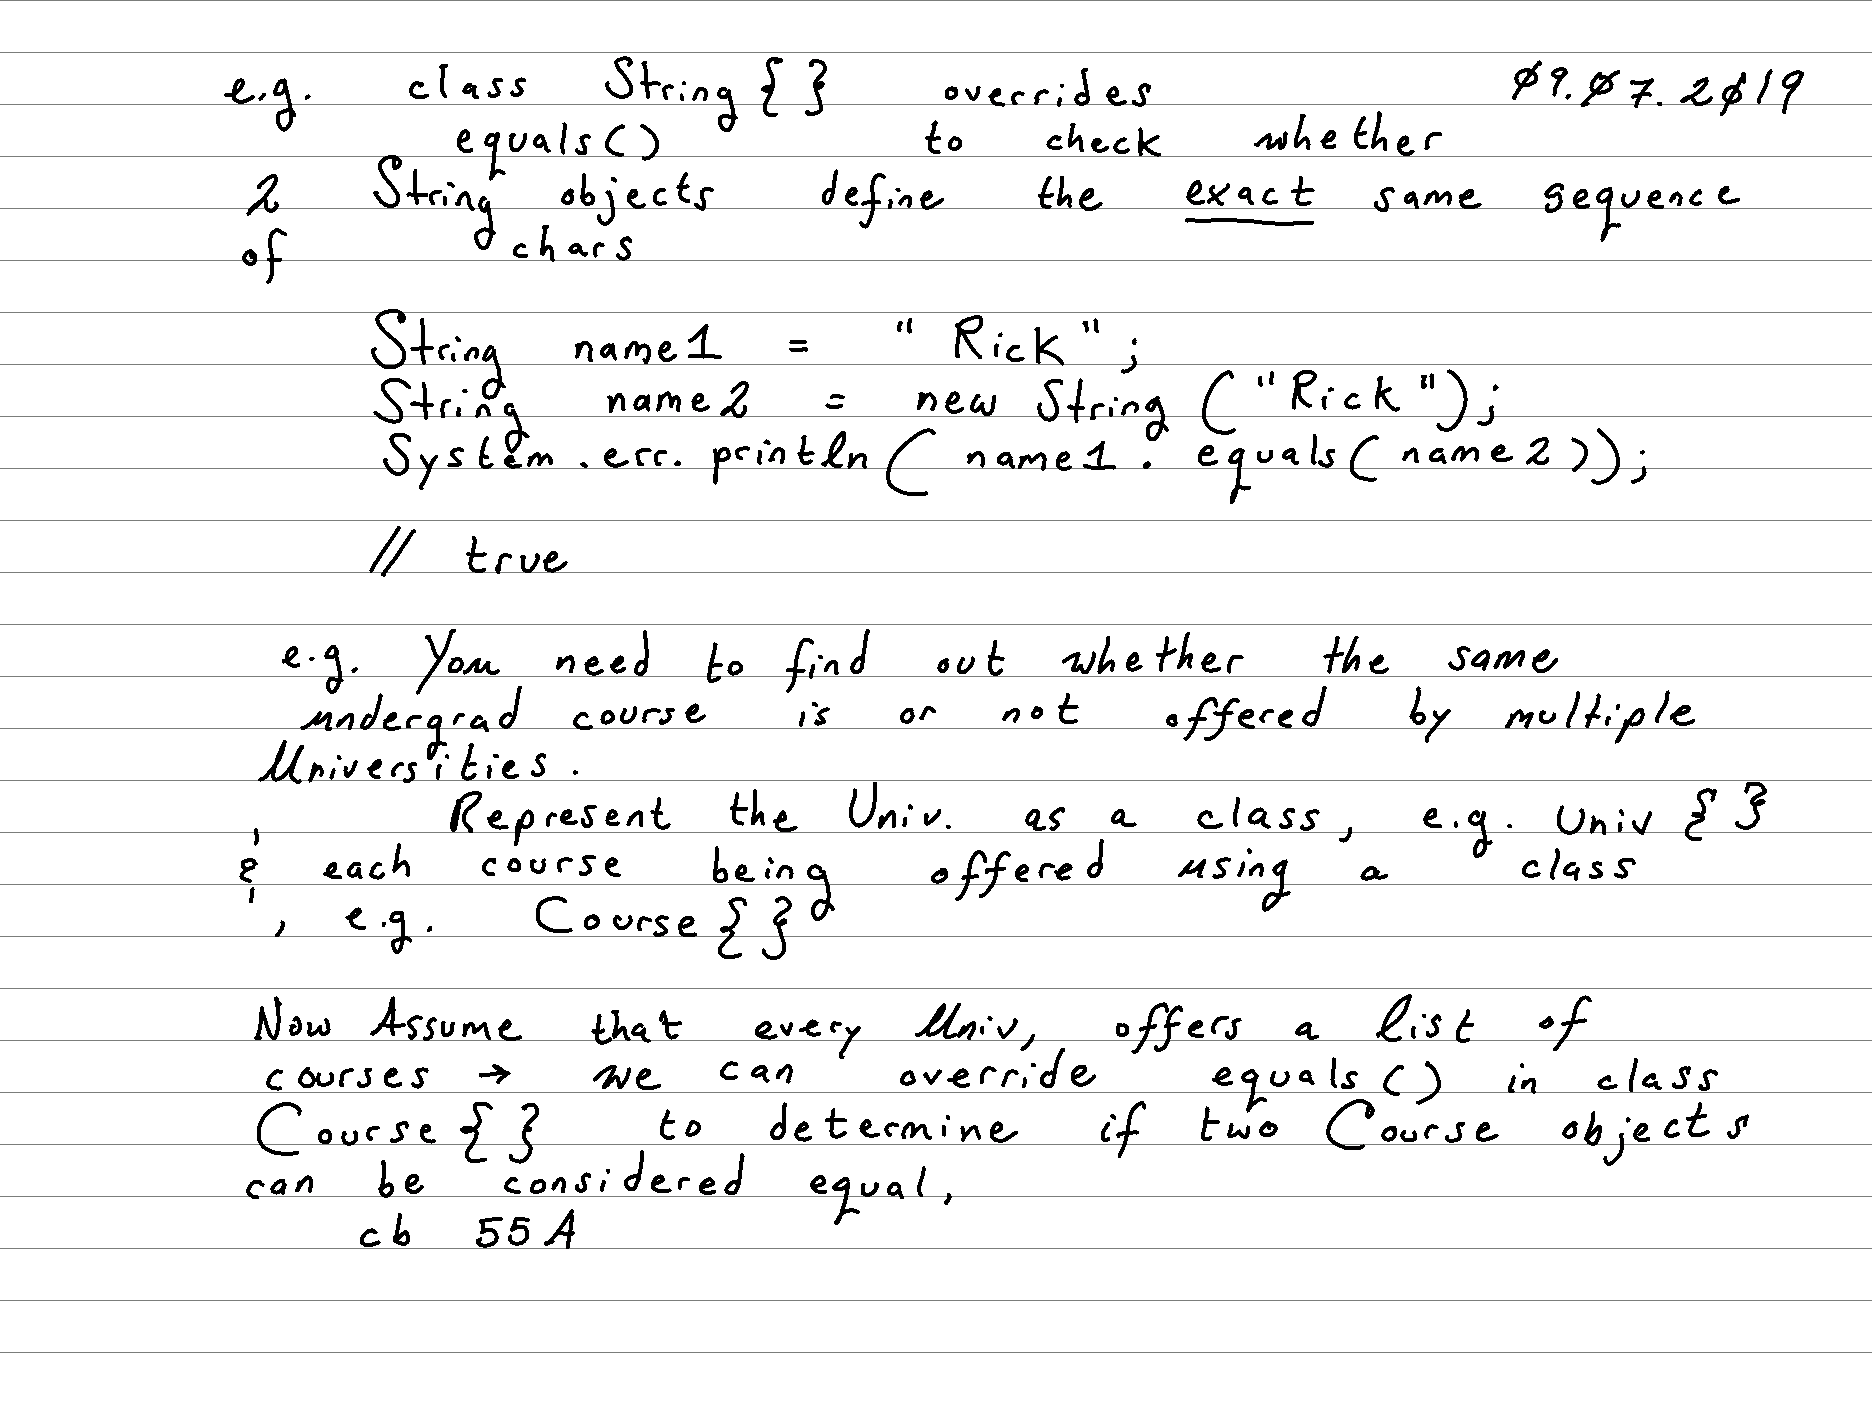 e.g. class String { } overrides 09.07.2019
equals() to check whether
2 String objects define the exact same sequence
of chars
String name1 = "Rick";
String name2 = new String ("Rick");
System.err.println( name1. equals( name2 ));
// true
e.g. You need to find out whether the same
undergrad course is or not offered by multiple
Universities.
Represent the Univ. as a class, e.g. Univ { }
& each course being offered using a class
, e.g. Course { }
Now Assume that every Univ, offers a list of
courses → we can override equals () in class
Course { } to determine if two Course objects
can be considered equal,
cb 55A